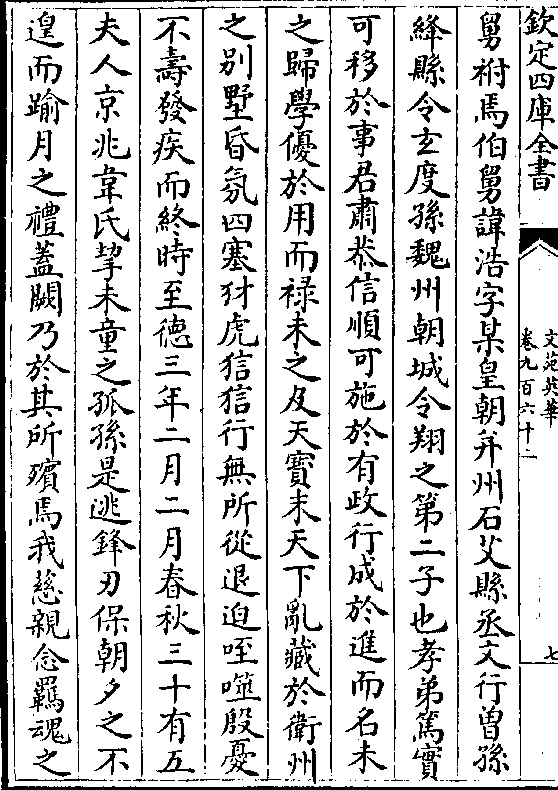 欽定四庫全書
文苑英華
卷九百六十二
七
舅祔焉伯舅諱浩字某皇朝并州石艾縣丞文行曾孫
絳縣令玄度孫魏州朝城令翔之第二子也孝弟篤實
可移於事君肅恭信順可施於有政行成於進而名未
之歸學優於用而禄未之及天寳末天下亂藏於衛州
之别墅昏氛四塞豺虎狺狺行無所從退迫咥噬殷憂
不壽發疾而終時至德三年二月二月春秋三十有五
夫人京兆韋氏挈未童之孤孫是逃鋒刃保朝夕之不
遑而踰月之禮蓋闕乃於其所殯焉我慈親念羈魂之